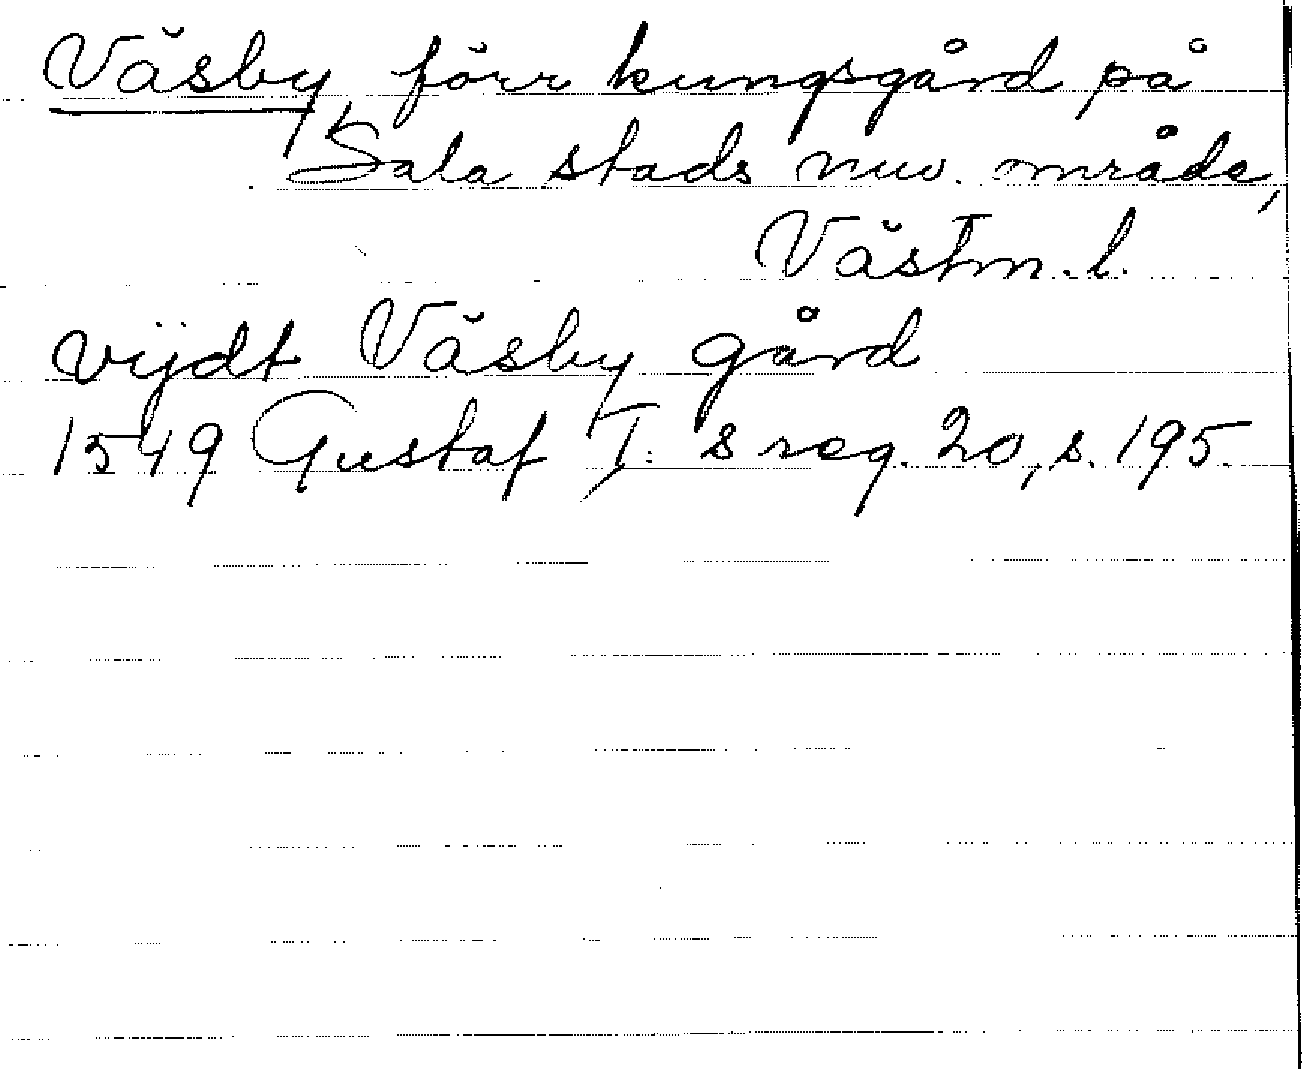 Väsby, förr kungsgård på
Sala stads nuv. område,
Västm. l.
vijdt Väsby gård
1549 Gustaf I:s reg. 20, s. 195.